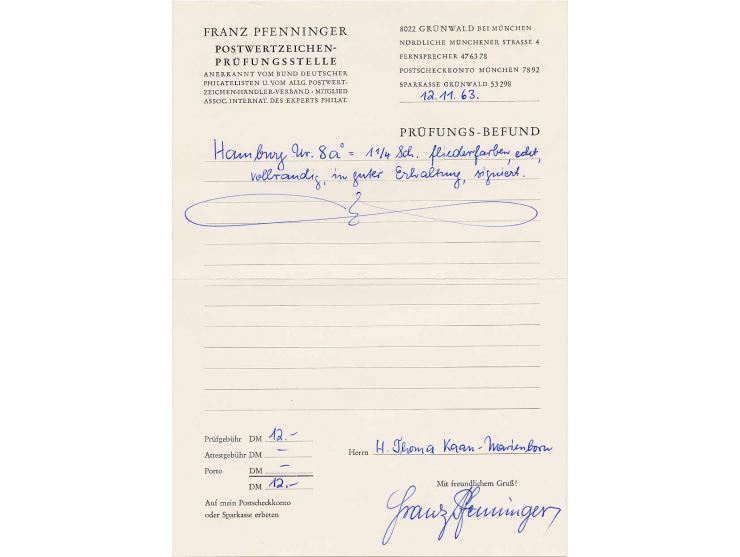 FRANZ PFENNINGER
POSTWERTZEICHEN-
PRÜFUNGSSTELLE
ANERKANNT VOM BUND DEUTSCHER
PHILATELISTEN U. VOM ALLG. POSTWERT-
ZEICHEN-HÄNDLER-VERBAND · MITGLIED
ASSOC. INTERNAT. DES EXPERTS PHILAT.
8022 GRÜNWALD BEI MÜNCHEN
NÖRDLICHE MÜNCHENER STRASSE 4
FERNSPRECHER 476378
POSTSCHECKKONTO MÜNCHEN 7892
SPARKASSE GRÜNWALD 53298
12.11.63.
PRÜFUNGS-BEFUND
Hamburg Nr. 8a° = 1 1/4 Sch. fliederfarben, echt,
vollrandig, in guter Erhaltung, signiert.
Prüfgebühr DM 12.-
Attestgebühr DM -
Porto DM -
DM 12.-
Auf mein Postscheckkonto
oder Sparkasse erbeten
Herrn H. Thoma Kaan-Marienborn
Mit freundlichem Gruß!
Franz Pfenninger